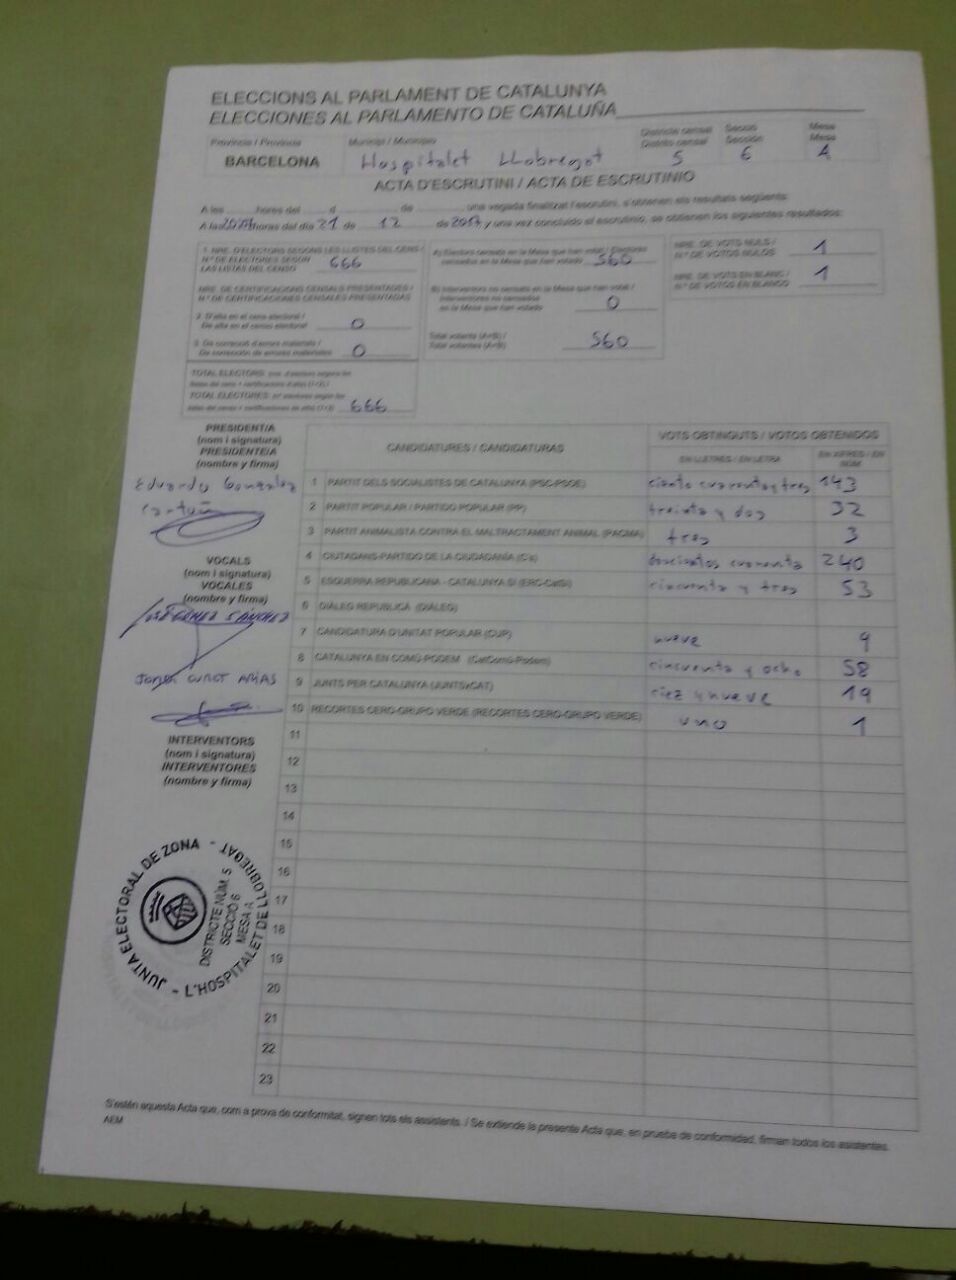 ELECCIONS AL PARLAMENT DE CATALUNYA
ELECCIONES AL PARLAMENTO DE CATALUÑA
Provincia / Provincia Municipi / Municipio Districte censal Secció Mesa
Distrito censal Sección Mesa
BARCELONA Hospitalet LLobregat 5 6 A
ACTA D'ESCRUTINI / ACTA DE ESCRUTINIO
A les hores del d de , una vegada finalitzat l'escrutini, s'obtenen els resultats següents:
A las horas del día 21 de 12 de 2017 y una vez concluido el escrutinio, se obtienen los siguientes resultados:
1. NRE. D'ELECTORS SEGONS LES LLISTES DEL CENS /
N.º DE ELECTORES SEGÚN
LAS LISTAS DEL CENSO 666
NRE. DE CERTIFICACIONS CENSALS PRESENTADES /
N.º DE CERTIFICACIONES CENSALES PRESENTADAS
2. D'alta en el cens electoral /
De alta en el censo electoral 0
3. De correcció d'errors materials /
De corrección de errores materiales 0
TOTAL ELECTORS:
TOTAL ELECTORES: 666
A) Electors censats en la Mesa que han votat / Electores
censados en la Mesa que han votado 560
B) Interventors no censats en la Mesa que han votat /
Interventores no censados
en la Mesa que han votado 0
Total votants (A+B) /
Total votantes (A+B) 560
NRE. DE VOTS NULS /
N.º DE VOTOS NULOS 1
NRE. DE VOTS EN BLANC /
N.º DE VOTOS EN BLANCO 1
PRESIDENT/A
(nom i signatura)
PRESIDENTE/A
(nombre y firma)
Eduardo Gonzalez
VOCALS
(nom i signatura)
VOCALES
(nombre y firma)
JOSÉ GÓMEZ SÁNCHEZ
ARIAS
INTERVENTORS
(nom i signatura)
INTERVENTORES
(nombre y firma)
CANDIDATURES / CANDIDATURAS VOTS OBTINGUTS / VOTOS OBTENIDOS
EN LLETRES / EN LETRA EN XIFRES / EN NÚM.
1 PARTIT DELS SOCIALISTES DE CATALUNYA (PSC-PSOE) ciento cuarenta y tres 143
2 PARTIT POPULAR / PARTIDO POPULAR (PP) treinta y dos 32
3 PARTIT ANIMALISTA CONTRA EL MALTRACTAMENT ANIMAL (PACMA) tres 3
4 CIUTADANS-PARTIDO DE LA CIUDADANÍA (C's) doscientos cuarenta 240
5 ESQUERRA REPUBLICANA - CATALUNYA SÍ (ERC-CatSí) cincuenta y tres 53
6 DIÀLEG REPUBLICÀ (DIÀLEG)
7 CANDIDATURA D'UNITAT POPULAR (CUP) nueve 9
8 CATALUNYA EN COMÚ-PODEM (CatComú-Podem) cincuenta y ocho 58
9 JUNTS PER CATALUNYA (JUNTSxCAT) diez y nueve 19
10 RECORTES CERO-GRUPO VERDE (RECORTES CERO-GRUPO VERDE) uno 1
11
12
13
14
15
16
17
18
19
20
21
22
23
JUNTA ELECTORAL DE ZONA - L'HOSPITALET DE LLOBREGAT -
DISTRICTE NÚM. 5
SECCIÓ 6
MESA A
S'estén aquesta Acta que, com a prova de conformitat, signen tots els assistents. / Se extiende la presente Acta que, en prueba de conformidad, firman todos los asistentes.
AEM